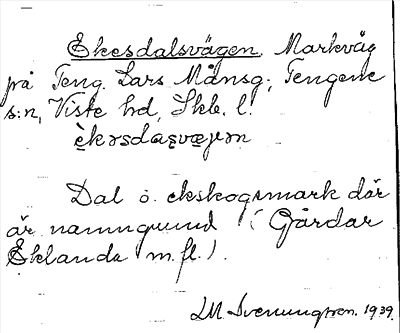 Ekesdalsvägen. Markväg
på Teng. Lars Månsg., Tengene
s:n, Viste hd, Skb. l.
Dal o. ekskogsmark där
är namngrund (Gårdar
Eklanda m.fl.).
1939.